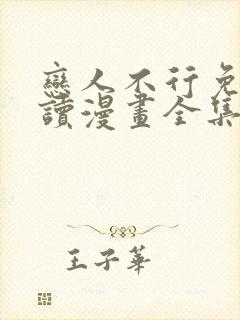 戀人不行免
讀漫畫全集
王子華